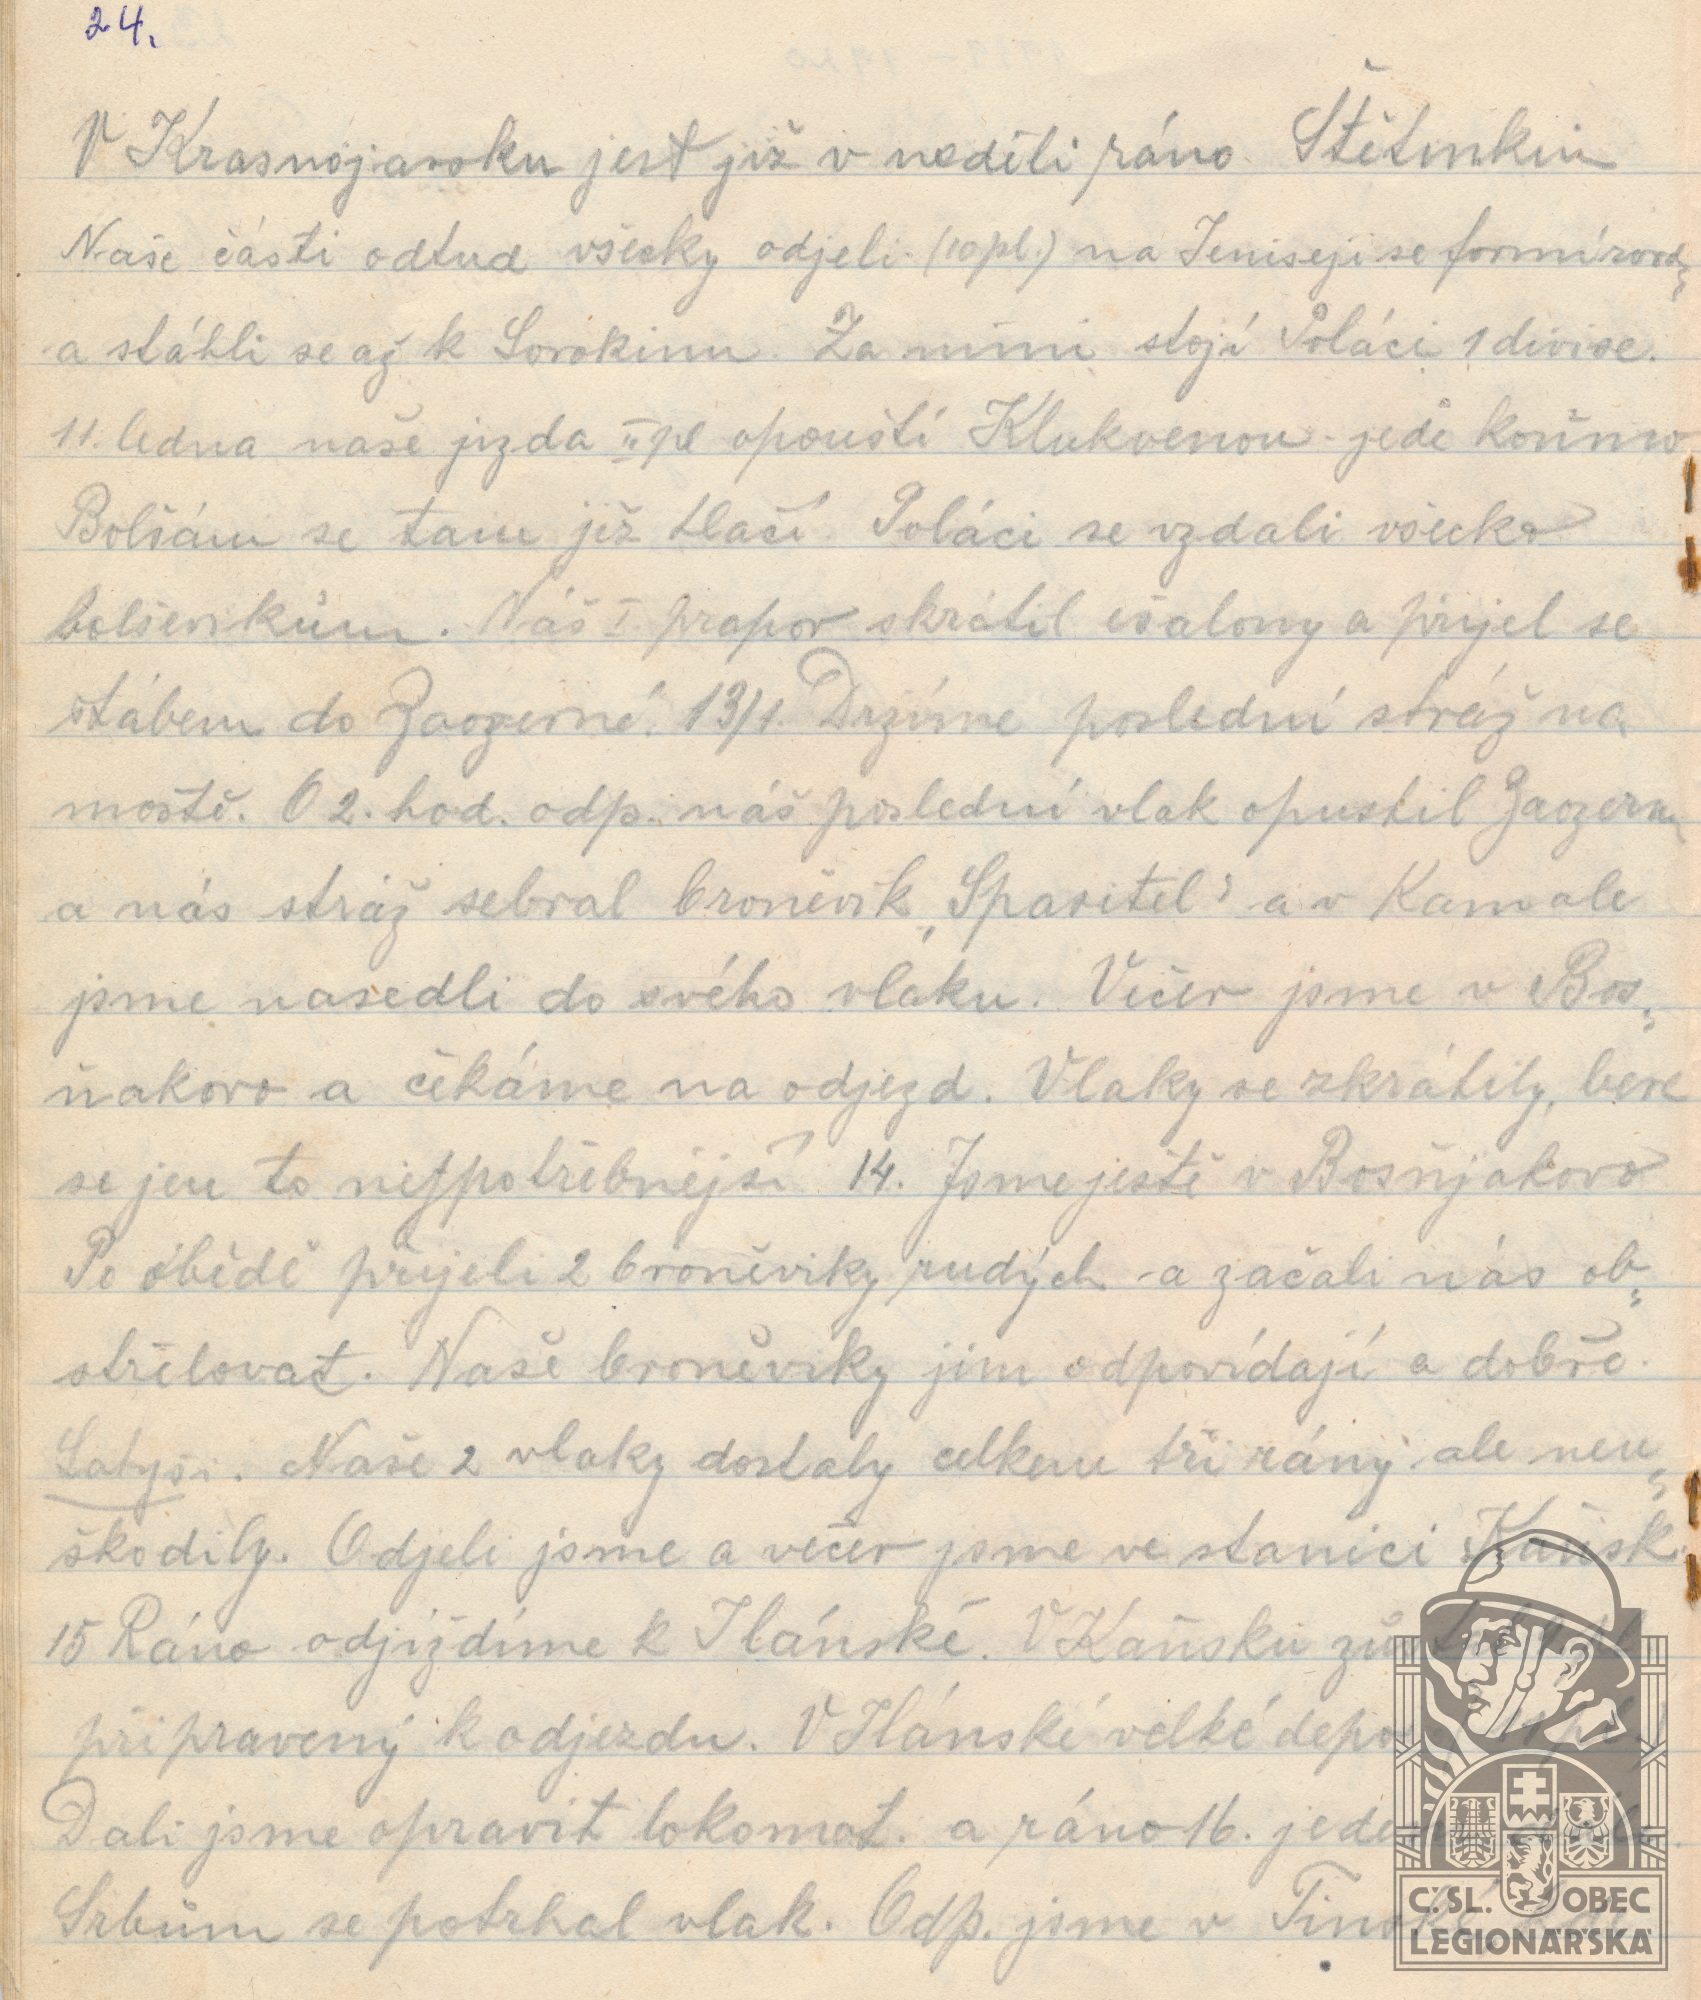 24.
V Krasnojarsku jest již v neděli ráno Štětinkin
Naše části odtud všecky odjeli (10pl.) na Jeniseji se formírovat
a stáhli se až k Sorokinu. Za nimi stojí Poláci 1 divise.
11. ledna naše jizda II pl opouští Klukvenou jede koňmo
Bolšám se tam již tlačí Poláci se vzdali všecko
bolševikům. Náš I prapor skrátil ešalony a přijel se
štábem do Zaozerné. 13/1. Držíme poslední stráž na
moště. O 2. hod. odp. náš poslední vlak opustil Zaozernu
a nás stráž sebral broněvik „Spasitel" a v Kamale
jsme nasedli do svého vlaku. Večer jsme v Bos„
ňakovo a čekáme na odjezd. Vlaky se zkrátily, bere
se jen to nejpotřebnější 14. Jsme ještě v Bosňjakovo
Po obědě přijeli 2 broněviky rudých a začali nás ob„
střelovat. Naše broněviky jim odpovídají a dobře.
Lotyši. Naše 2 vlaky dostaly celkem tři rány ale neu„
škodily. Odjeli jsme a večer jsme ve stanici Kaňsk.
15 Ráno odjiždíme k Ilánské. V Kaňsku
připraveny k odjezdu. V Ilánské velké depo 11 pl.
Dali jsme opravit lokomot. a ráno 16. jedeme
Srbům se potrhal vlak. Odp. jsme v Tinské
Č. SL. OBEC
LEGIONÁŘSKÁ